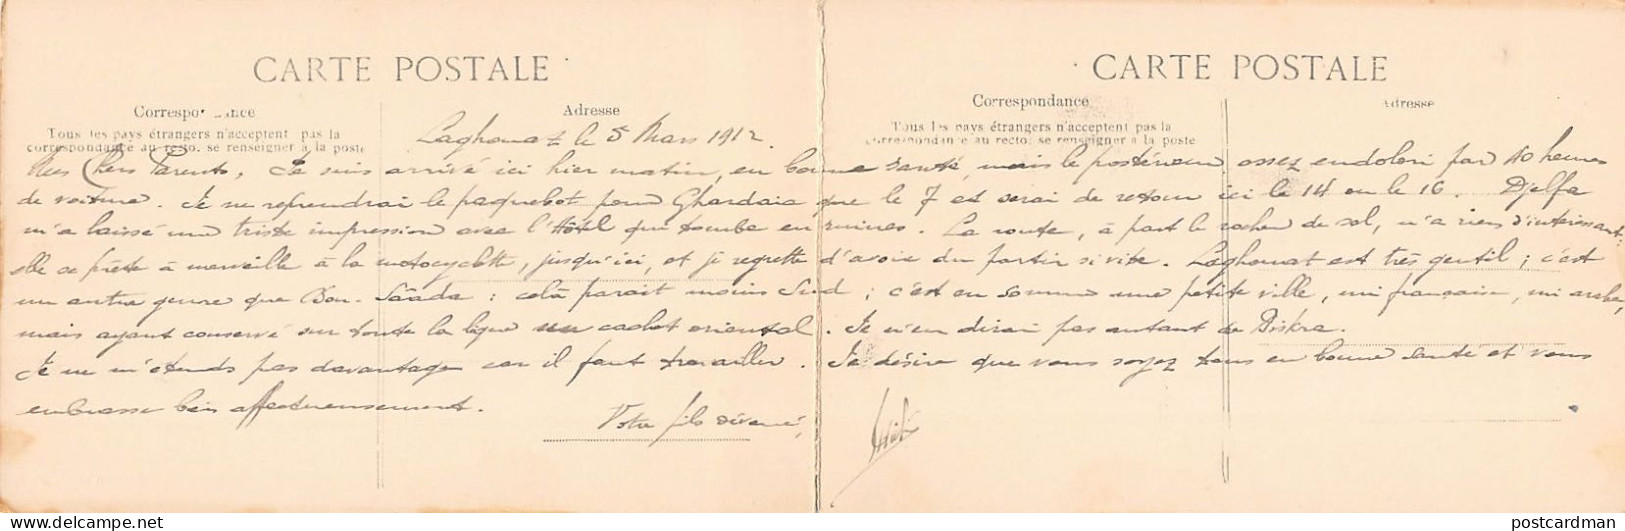 CARTE POSTALE
CARTE POSTALE
Correspondance
Adresse
Correspondance
Adresse
Tous les pays étrangers n'acceptent pas la
correspondance au recto. se renseigner à la poste
Tous les pays étrangers n'acceptent pas la
correspondance au recto. se renseigner à la poste
Laghouat le 5 Mars 1912.
Mes Chers Parents, Je suis arrivé ici hier matin, en bonne santé, mais le postérieur assez endolori par 10 heures
de voiture. Je ne reprendrai le paquebot pour Ghardaia que le 7 et serai de retour ici le 14 ou le 16. Djelfa
m'a laissé une triste impression avec l'Hôtel qui tombe en ruines. La route, à part le rocher de sel, n'a rien d'intéressant:
elle se prête à merveille à la motocyclette, jusqu'ici, et je regrette d'avoir du partir si vite. Laghouat est très gentil; c'est
un autre genre que Bou-Sâada: celà parait moins Sud; c'est en somme une petite ville, mi française, mi arabe,
mais ayant conservé sur toute la ligne un cachet oriental. Je n'en dirai pas autant de Biskra.
Je ne m'étends pas davantage car il faut travailler. Je désire que vous soyez tous en bonne santé et vous
embrasse bien affectueusement.
Votre fils dévoué,
postcardman